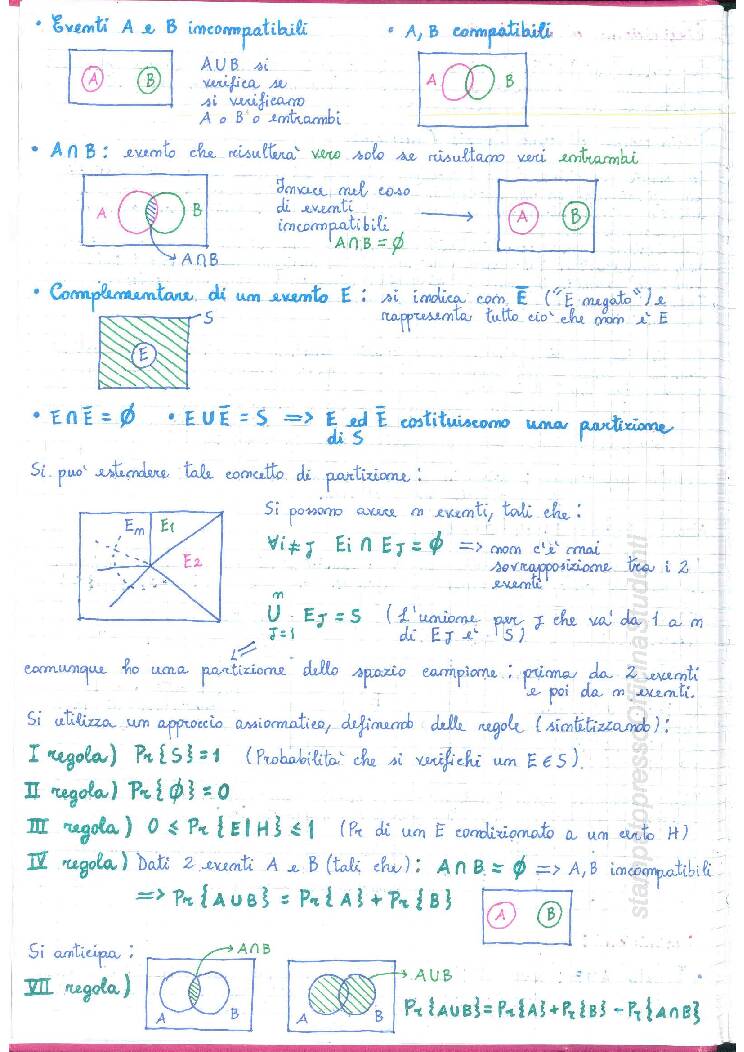 • Eventi A e B incompatibili
• A, B compatibili
A
B
A∪B si
verifica se
si verificano
A o B o entrambi
A
B
• A∩B : evento che risulterà vero solo se risultano veri entrambi
A
B
A∩B
Invece nel caso
di eventi
incompatibili
A∩B = ∅
A
B
• Complementare di un evento E : si indica con Ē ("E negato") e
rappresenta tutto ciò che non è E
S
E
• E∩Ē = ∅ • E∪Ē = S => E ed Ē costituiscono una partizione
di S
Si può estendere tale concetto di partizione :
En
E1
E2
Si possono avere n eventi, tali che :
∀i≠J Ei ∩ EJ = ∅ => non c'è mai
sovrapposizione tra i 2
eventi
n
∪ EJ = S (L'unione per J che va da 1 a n
J=1 di EJ è S)
comunque ho una partizione dello spazio campione : prima da 2 eventi
e poi da n eventi.
Si utilizza un approccio assiomatico, definendo delle regole (sintetizzando) :
I regola) Pr{S}=1 (Probabilità che si verifichi un E∈S).
II regola) Pr{∅}=0
III regola) 0 ≤ Pr{E|H} ≤ 1 (Pr di un E condizionato a un certo H)
IV regola) Dati 2 eventi A e B (tali che) : A∩B = ∅ => A, B incompatibili
=> Pr{A∪B} = Pr{A} + Pr{B}
A
B
Si anticipa :
VII regola)
A∩B
A
B
A∪B
A
B
Pr{A∪B}=Pr{A}+Pr{B}-Pr{A∩B}